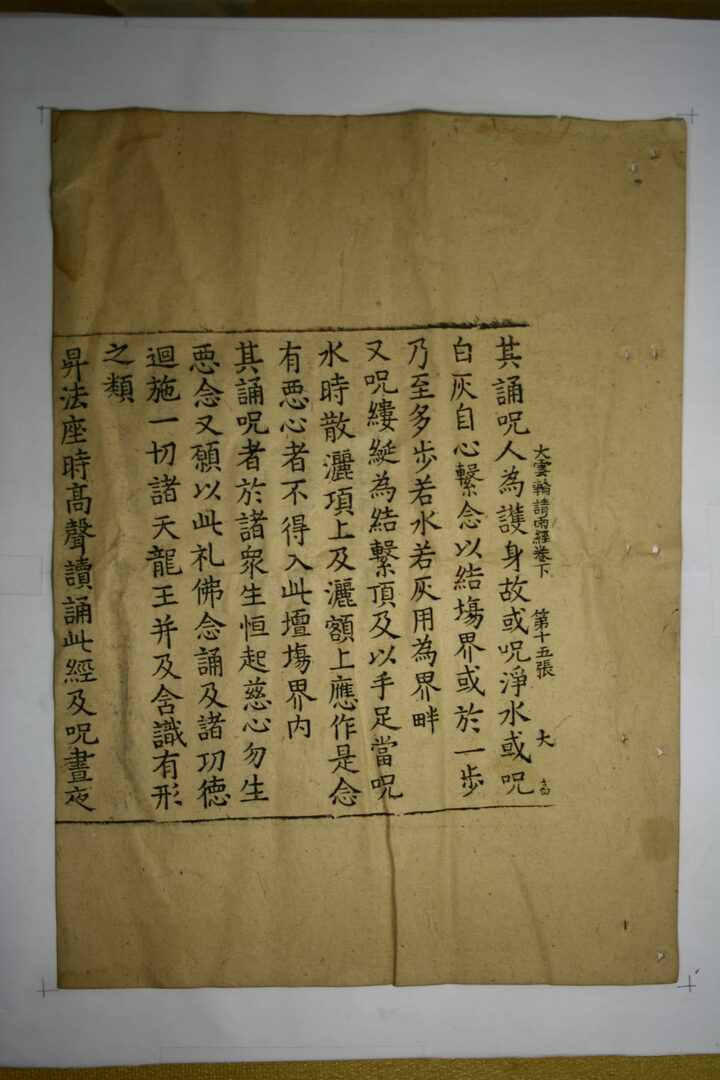 大雲輪請雨經卷下 第十五張 大
其誦呪人為護身故或呪淨水或呪
白灰自心繫念以結塲界或於一步
乃至多步若水若灰用為界畔
又呪縷綖為結繫頂及以手足當呪
水時散灑項上及灑額上應作是念
有悪心者不得入此壇塲界內
其誦呪者於諸衆生恒起慈心勿生
悪念又願以此礼佛念誦及諸功徳
迴施一切諸天龍王并及舍識有形
之類
昇法座時髙聲讀誦此經及呪晝夜